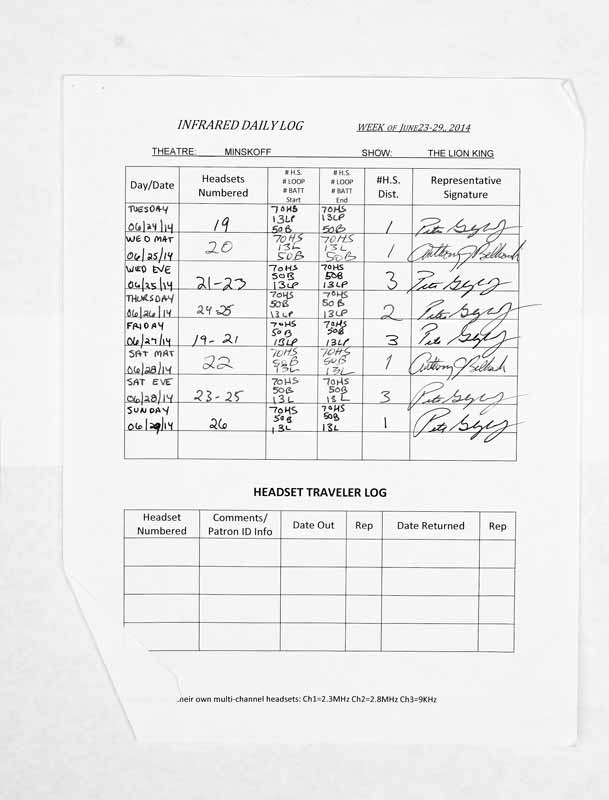 INFRARED DAILY LOG WEEK OF JUNE23-29,, 2014
THEATRE: MINSKOFF SHOW: THE LION KING
Day/Date Headsets Numbered # H.S. # LOOP # BATT Start # H.S. # LOOP # BATT End #H.S. Dist. Representative Signature
TUESDAY 06/24/14 19 70HS 13LP 50B 70HS 13LP 50B 1
WED MAT 06/25/14 20 70HS 13L 50B 70HS 13L 50B 1
WED EVE 06/25/14 21-23 70HS 50B 13LP 70HS 50B 13LP 3
THURSDAY 06/26/14 24-25 70HS 50B 13LP 70HS 50B 13LP 2
FRIDAY 06/27/14 19-21 70HS 50B 13LP 70HS 50B 13LP 3
SAT MAT 06/28/14 22 70HS 50B 13L 70HS 50B 13L 1
SAT EVE 06/28/14 23-25 70HS 50B 13L 70HS 50B 13L 3
SUNDAY 06/29/14 26 70HS 50B 13L 70HS 50B 13L 1
HEADSET TRAVELER LOG
Headset Numbered Comments/ Patron ID Info Date Out Rep Date Returned Rep
their own multi-channel headsets: Ch1=2.3MHz Ch2=2.8MHz Ch3=9KHz